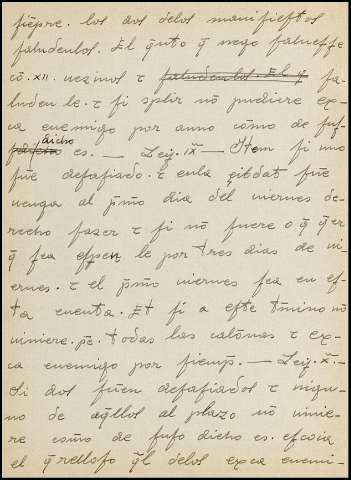 ſiẽpre. los dos delos manifieſtos
ſaludenlos. El q̃nto q̃ nego ſalueſſe
cõ .xii. vezinos ⁊ ſaludenlos. El q̃ ſa-
luden le. ⁊ ſi ſplir nõ pudiere ex-
ca enemigo por anno cõmo de ſuſ-
dicho es. — Leij. ix.ª — Otem ſi uno
fuẽ deſafiado. ⁊ enla çibdat fuẽ
venga al p̃mo dia del viernes de-
recho fazer ⁊ ſi nõ fuere o q̃ q̃er
q̃ ſea eſpen le por tres dias de vi-
ernes. ⁊ el p̃mo viernes ſea en eſ-
ta cuenta. Et ſi a eſte t̃mino nõ
viniere. pẽ. todas las calõnas ⁊ ex-
ca enemigo por ſiemp̃. — Leij. x.ª —
Si dos fuẽen deſafiados ⁊ nigu-
no de aq̃llos al plazo nõ vinie-
re cõmo de ſuſo dicho es. eſcoia
el q̃relloſo q̃l delos exca enemi-